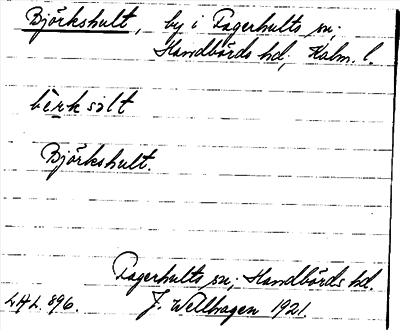 Björkshult, by i Fagerhults sn;
Handbörds hd, Kalm. l.
bèrksïlt
Björkshult.
Fagerhults sn; Handbörds hd.
LHL. 896. J. Wellhagen 1921.